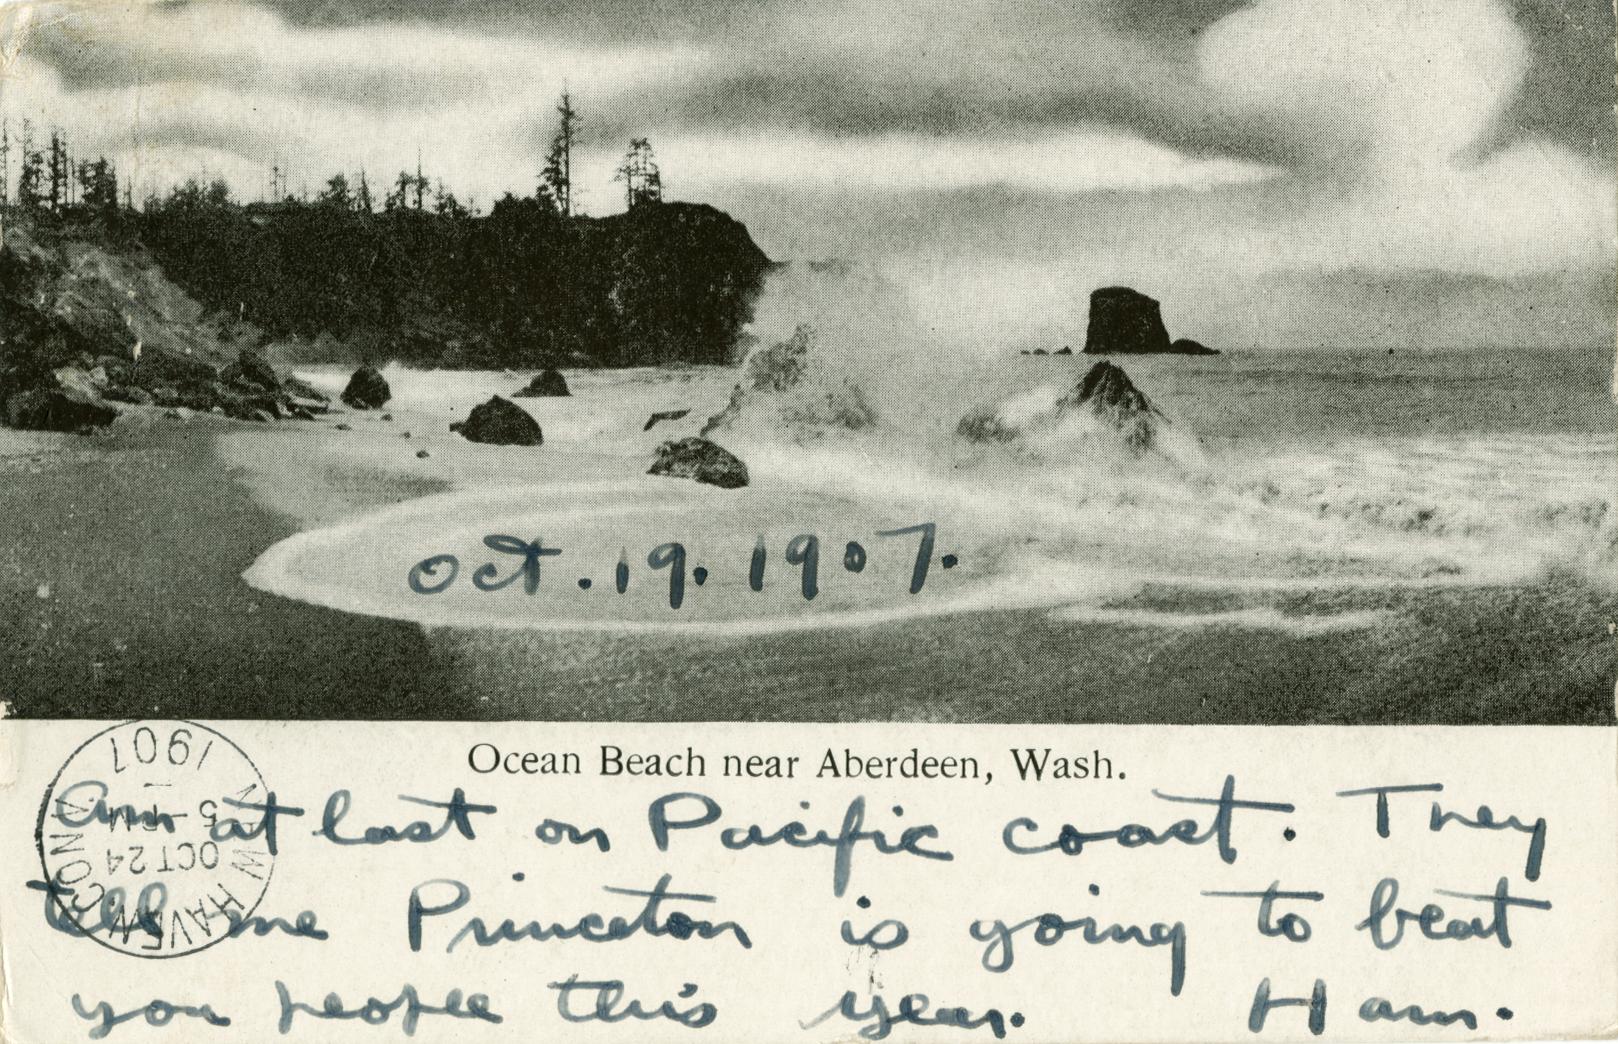 Oct. 19. 1907.
Ocean Beach near Aberdeen, Wash.
Am at last on Pacific coast. They
tell me Princeton is going to beat
you people this year. Ham.
NEW HAVEN, CONN.
OCT 24
5 - PM
1907